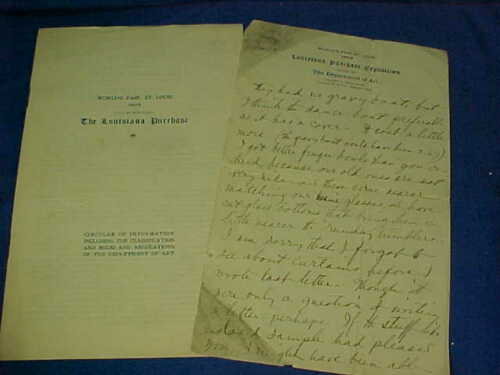 WORLD'S FAIR, ST. LOUIS
The Louisiana Purchase
CIRCULAR OF INFORMATION
INCLUDING THE CLASSIFICATION
AND RULES AND REGULATIONS
OF THE DEPARTMENT OF ART
WORLD'S FAIR, ST. LOUIS
Louisiana Purchase Exposition
The Department of Art
They had no gravy boats, but
I think the sauce boat preferable
as it has a cover. It cost a little
more (the gravy boat would have been
I got better finger bowls than you or-
dered because our old ones are not
very and these come nearer
matching our wine glasses as have
cut glass bottoms that bring them a
little nearer to tumblers.
I am sorry that I forgot to
see about curtains before I
wrote last letter. Though it
were only a question of writing
a letter perhaps. If the stuff
had pleased
you I might have been able